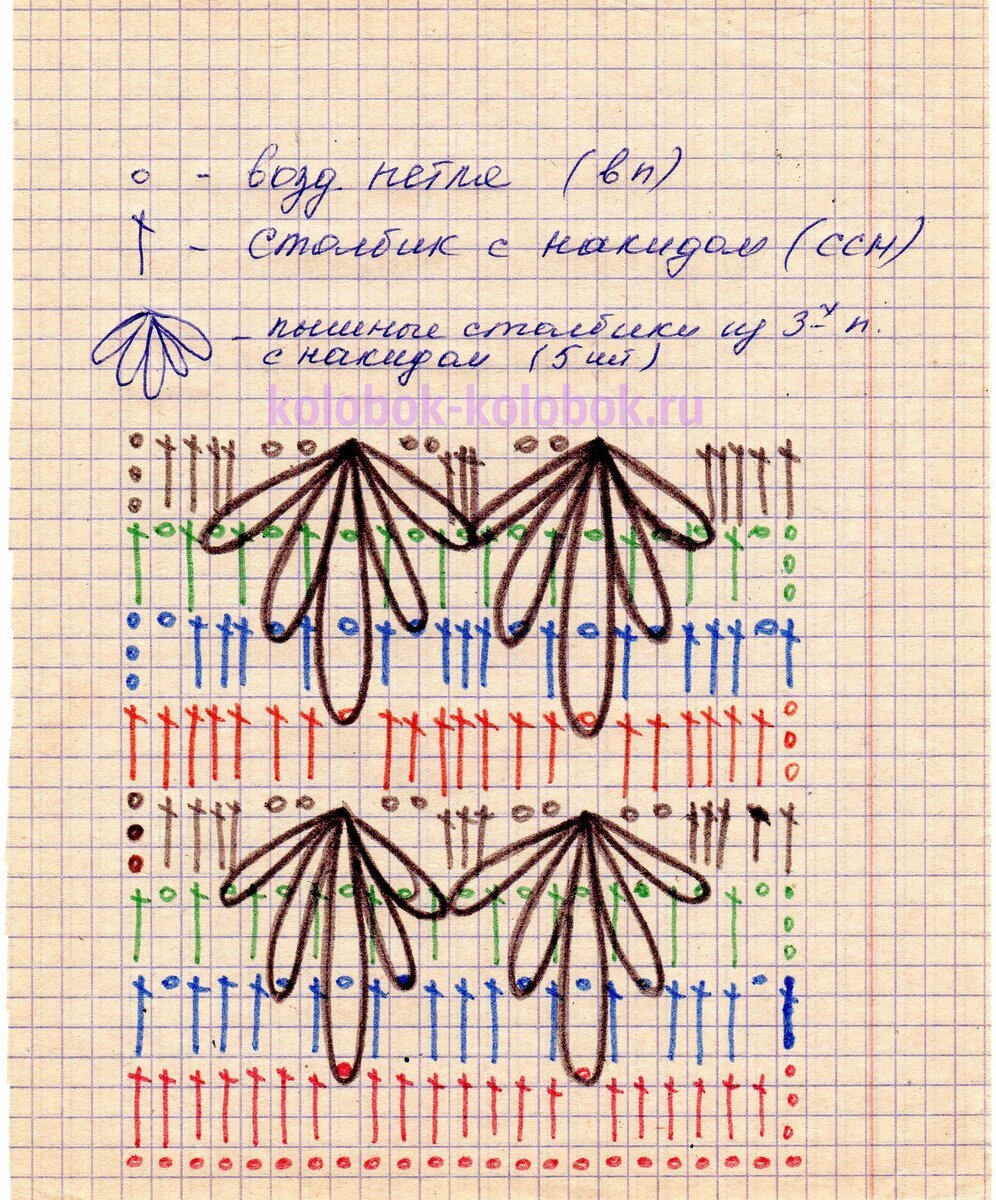 о - возд. петля (вп)
† - столбик с накидом (ссн)
- пышные столбики из 3-х п.
с накидом (5 шт)
kolobok-kolobok.ru